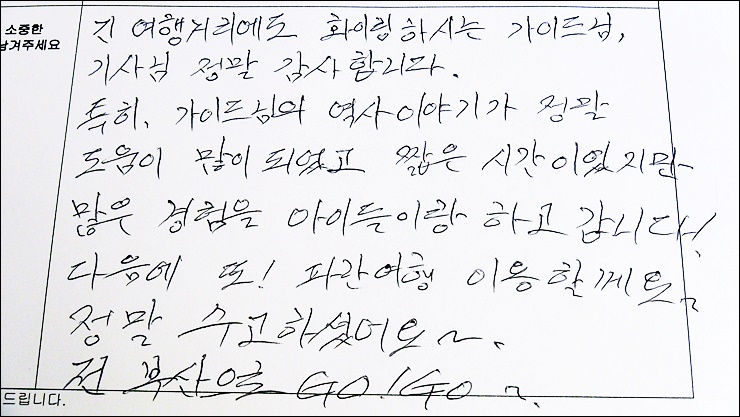 소중한
남겨주세요
긴 여행거리에도 화이링하시는 가이드님,
기사님 정말 감사합니다.
특히, 가이드님의 역사이야기가 정말
도움이 많이 되었고 짧은 시간이었지만
많은 경험을 아이들이랑 하고 갑니다!
다음에 또! 파란여행 이용할께요~
정말 수고하셨어요~.
전 부산으로 GO!GO~.
드립니다.